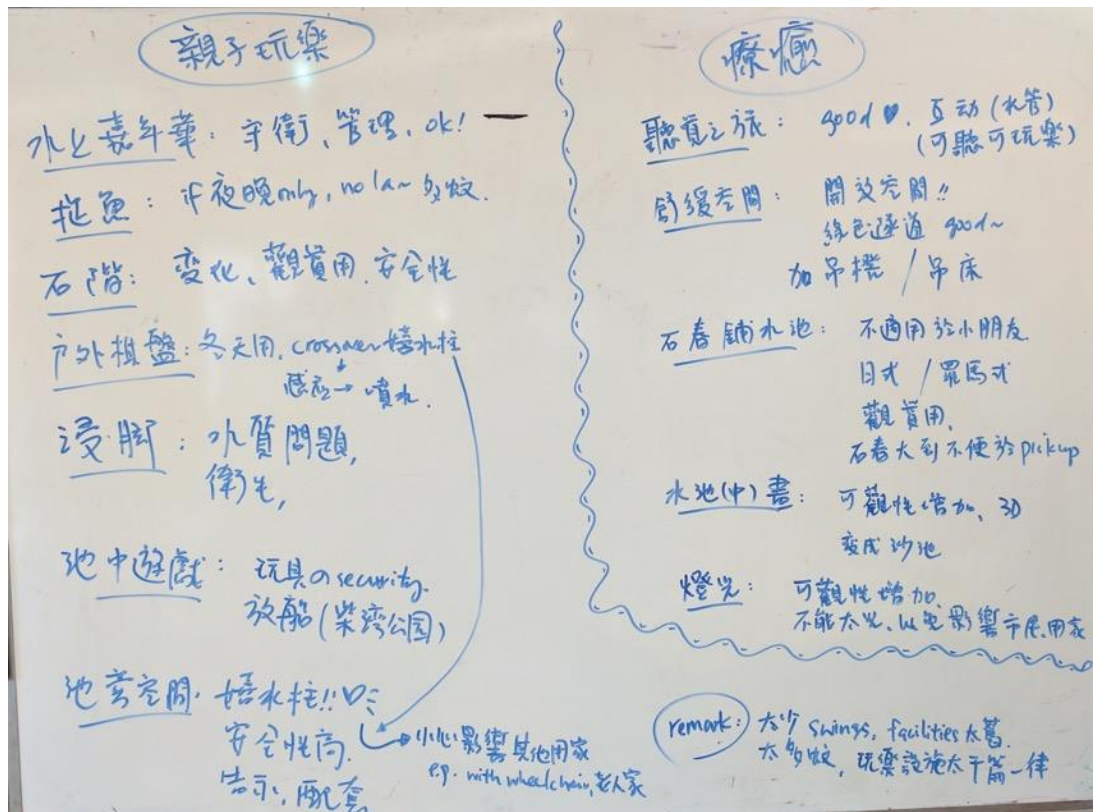 親子玩樂
水上嘉年華：守衛、管理、ok!
拖魚：if 夜晚only, no la~ 多蚊.
石階：変化、觀賞用、安全性
户外棋盤：冬天用, crossover 嬉水柱
感应→噴水.
浸腳：水質問題,
衛生,
池中遊戲：玩具の security.
放船(柴灣公园)
池旁空間：嬉水柱!!♡
安全性高.
小心影響其他用家
e.g. with wheelchair, 老人家
告示, 配套
療癒
聽覺之旅：good ♥. 互动(水管)
(可聽可玩樂)
舒緩空間：開放空間!!
綠色隧道 good~
加吊櫈 / 吊床
石春鋪水池：不適用於小朋友.
日式 / 羅馬式
觀賞用,
石春大到不便於 pick up
水池(中)畫：可觀性增加、3D
変成沙池
燈光：可觀性增加
不能太光, 以免影響市民、用家
remark: 太少 swings, facilities 太舊.
太多蚊, 玩樂設施太千篇一律